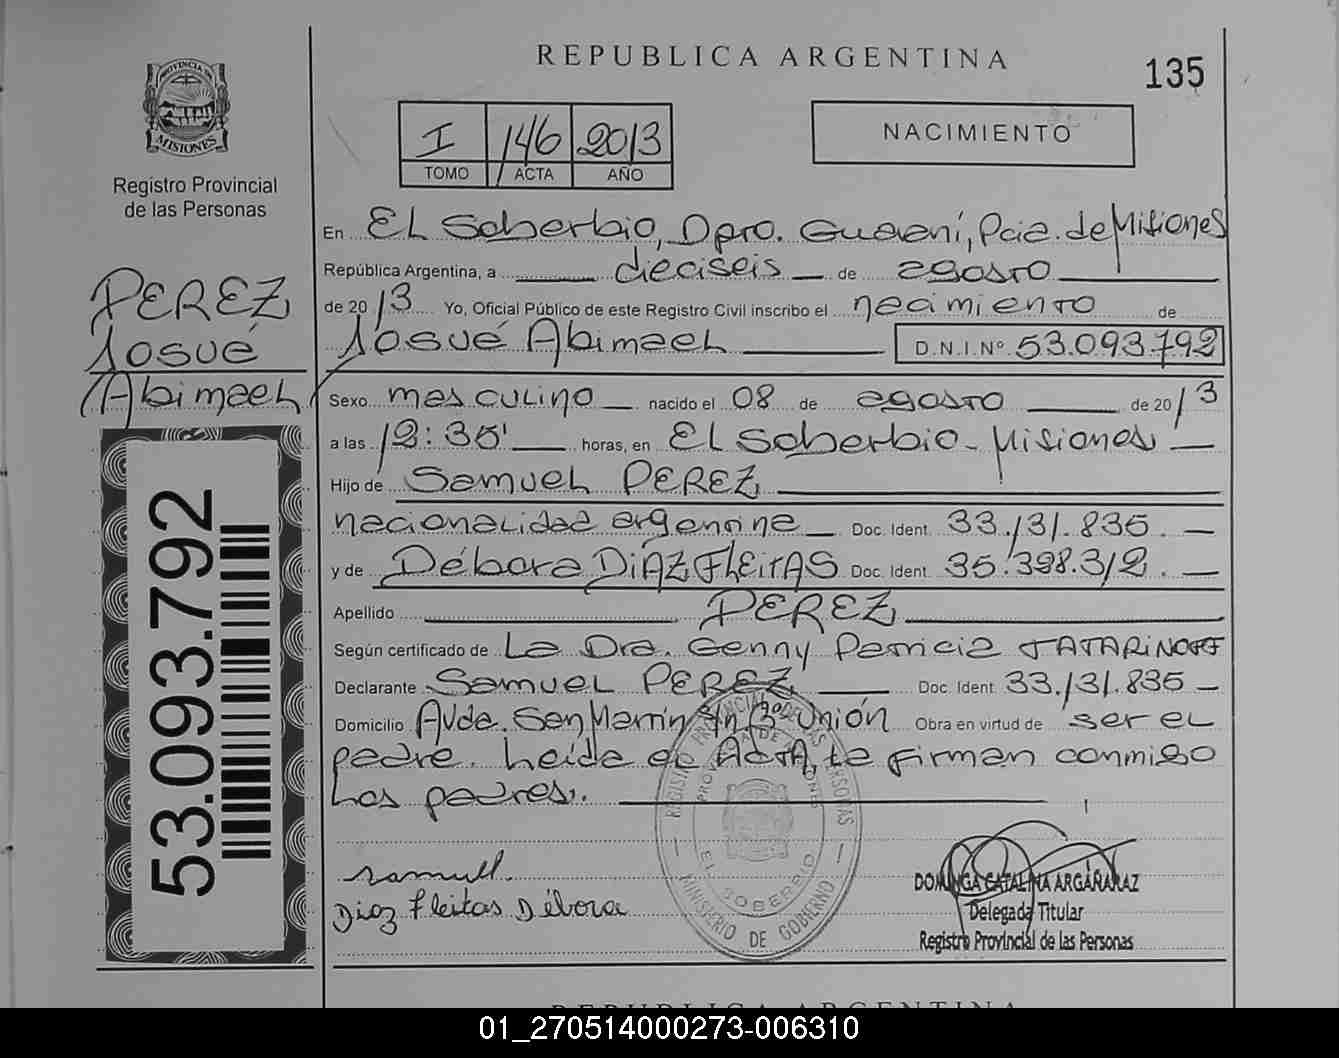 REPUBLICA ARGENTINA
135
PROVINCIA DE
MISIONES
Registro Provincial
de las Personas
I 146 2013
TOMO ACTA AÑO
NACIMIENTO
En El Soberbio, Dpto. Guaraní, Pcia. de Misiones
República Argentina, a dieciseis de agosto
de 2013 Yo, Oficial Público de este Registro Civil inscribo el nacimiento de
Josué Abimael D.N.I.Nº 53.093.792
PEREZ
Josué
Abimael
Sexo masculino nacido el 08 de agosto de 2013
a las 12:35' horas, en El Soberbio - Misiones
Hijo de Samuel PEREZ
nacionalidad argentina Doc. Ident. 33.131.835.
y de Débora DIAZ FLEITAS Doc. Ident. 35.398.312.
Apellido PEREZ
Según certificado de La Dra. Genny Patricia TATARINOFF
Declarante Samuel PEREZ Doc. Ident 33.131.835
Domicilio Avda. San Martín S/n Bº Unión Obra en virtud de ser el
padre. Leída el ACTA, la firman conmigo
los padres.
53.093.792
REGISTRO PROVINCIAL DE LAS PERSONAS
EL SOBERBIO
MINISTERIO DE GOBIERNO
Samuel.
Diaz fleitas Débora
DOMINGA CATALINA ARGAÑARAZ
Delegada Titular
Registro Provincial de las Personas
REPUBLICA ARGENTINA
01_270514000273-006310